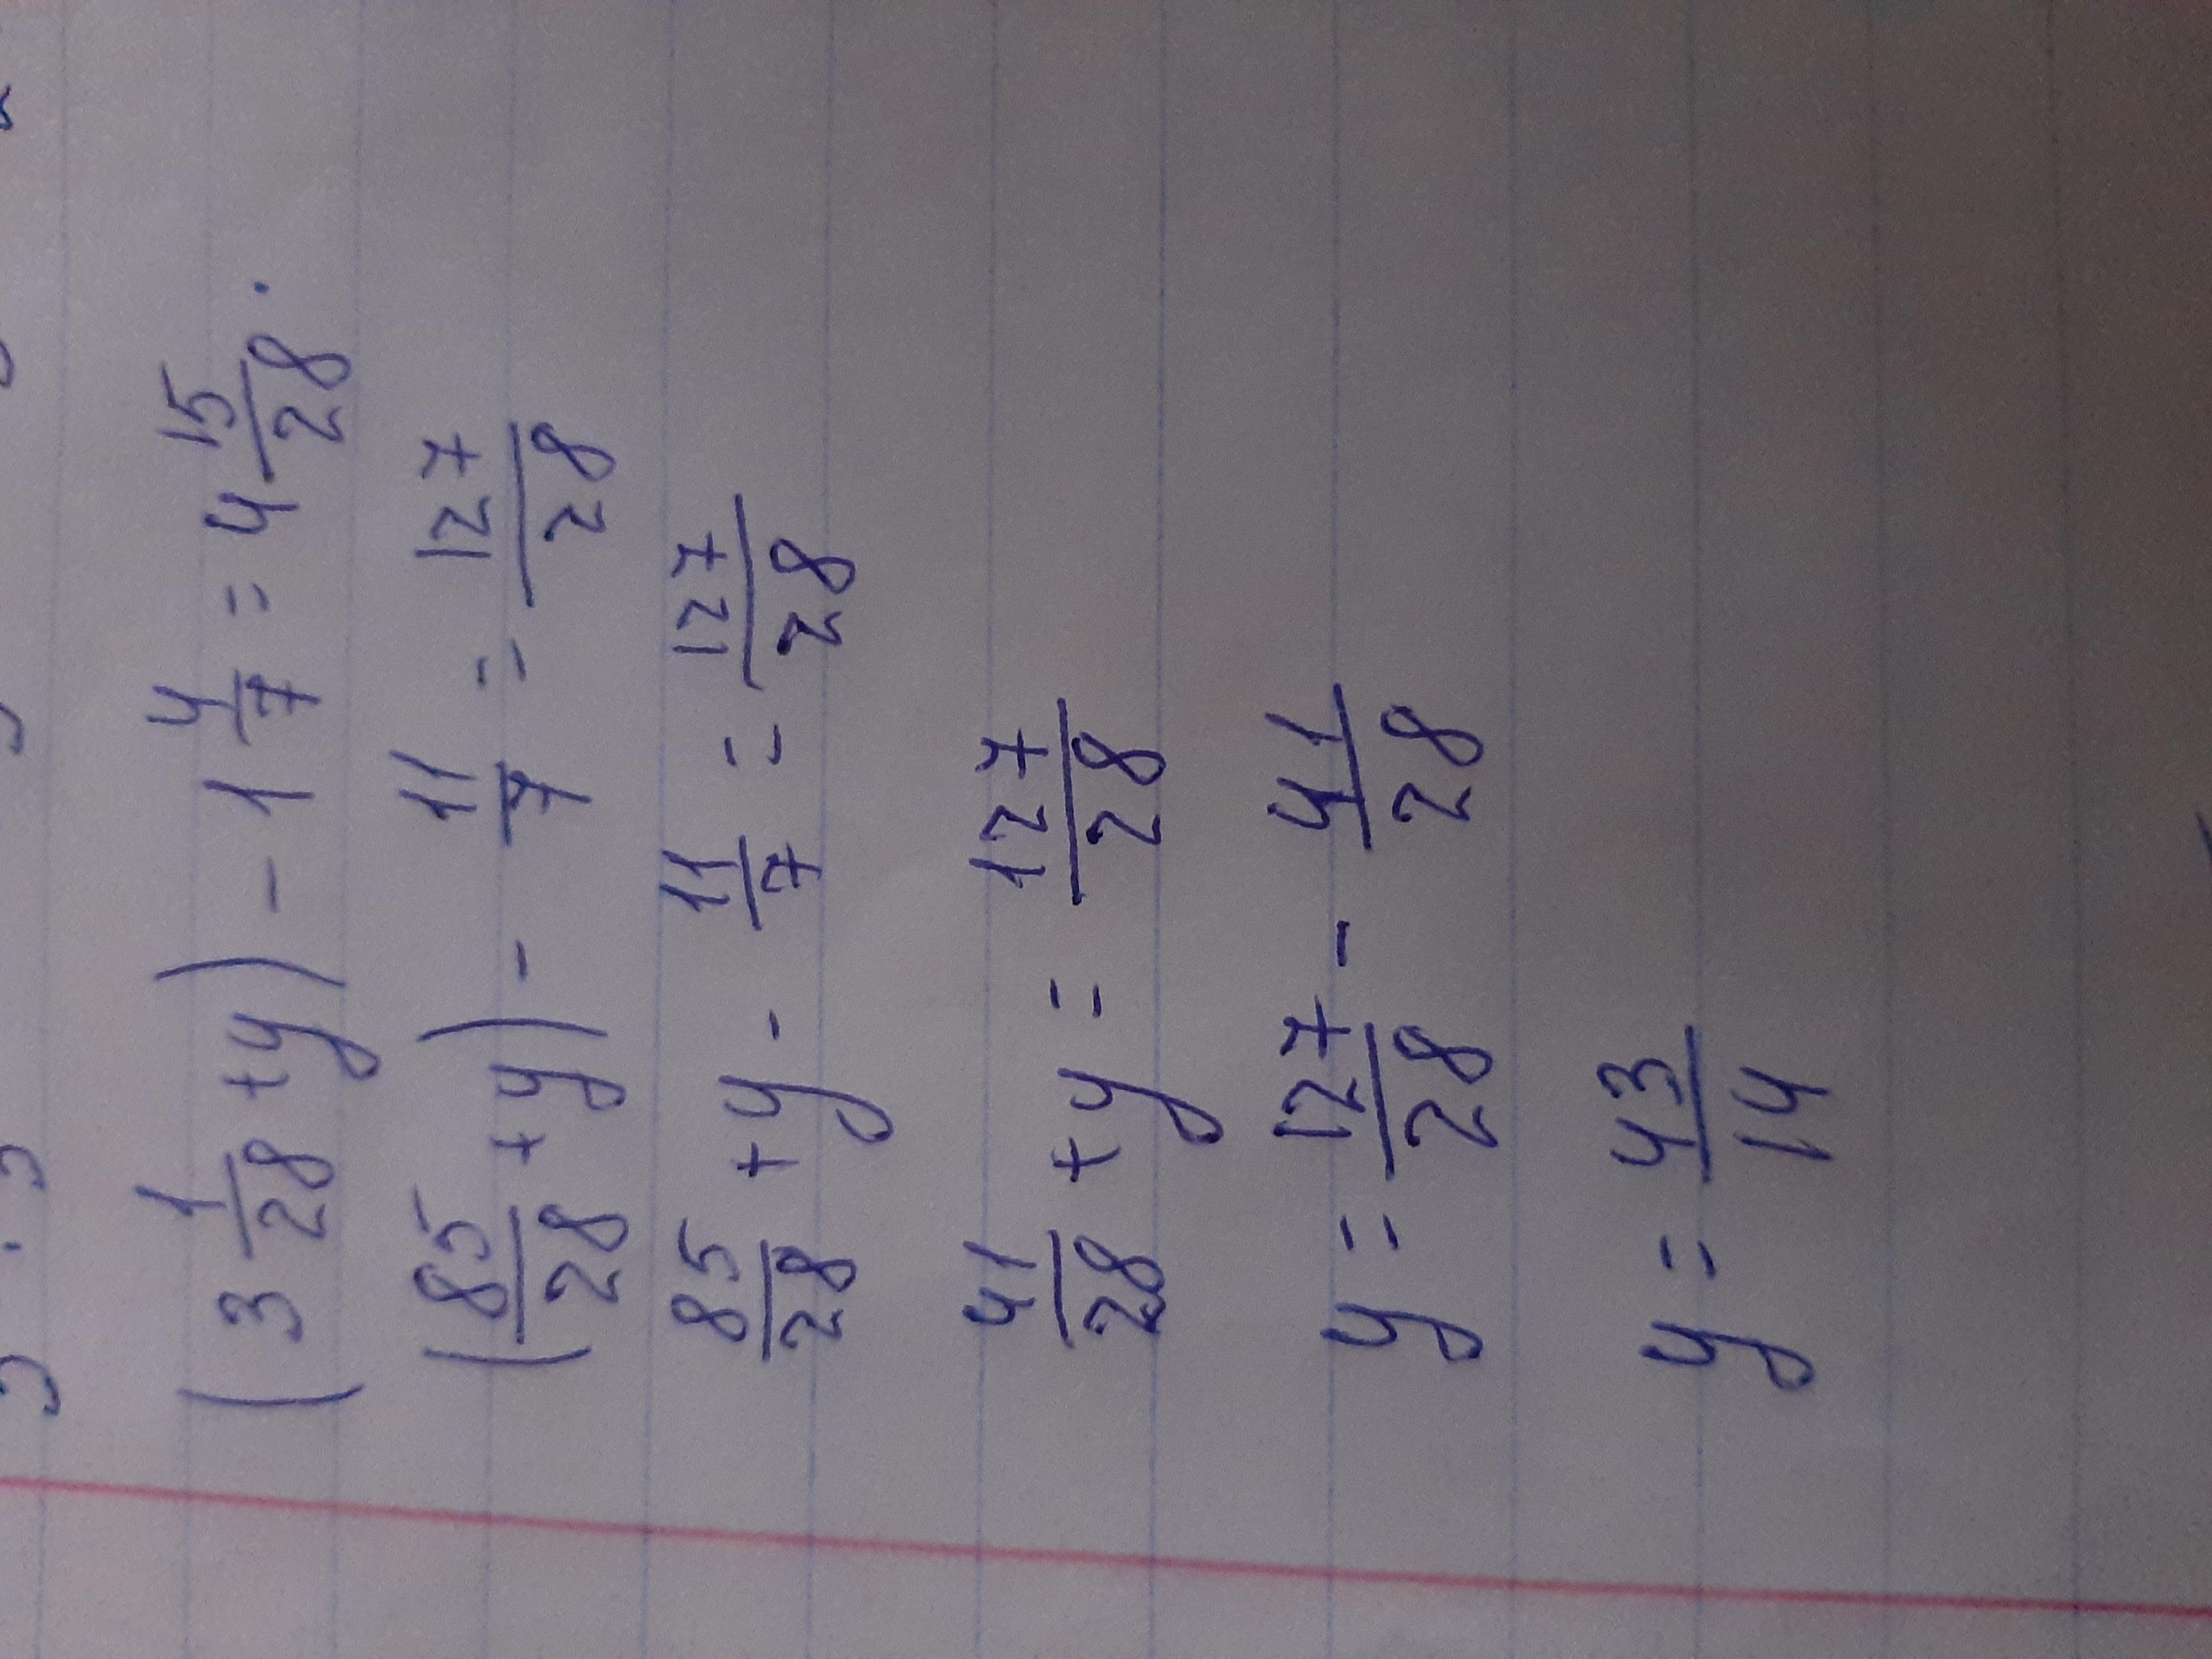 (3 1/28 + y) - 1 4/7 = 4 15/28.
(85/28 + y) - 11/7 = 127/28
85/28 + y - 11/7 = 127/28
41/28 + y = 127/28
y = 127/28 - 41/28
y = 43/14